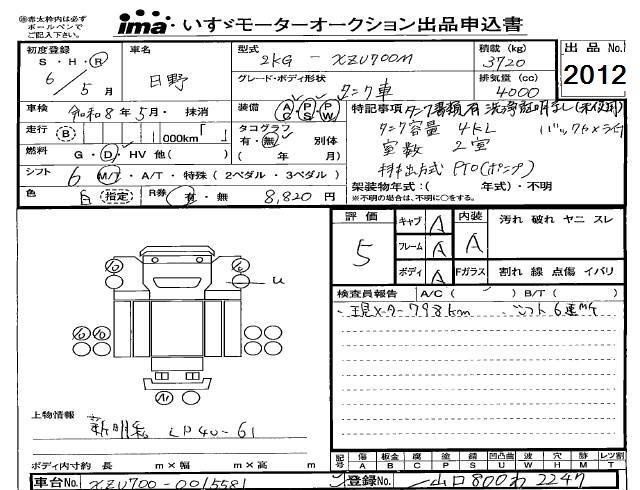 ※赤太枠内は必ず
ボールペンで
ご記入下さい。
ima・いすゞモーターオークション出品申込書
初度登録 S・H・R 6/5月
車名 日野
型式 2KG - XZU700M
積載(kg) 3720
出品No. 2012
グレード・ボディ形状 タンク車
排気量(cc) 4000
車検 令和8年5月・抹消
装備 AC・PS・PW
特記事項 タンク書類有 洗浄証明なし(未使用)
タンク容量 4KL バックカメラ付
室数 2室
排出方式 PTO(ポンプ)
走行 B 000km「 」
タコグラフ 有・無 別体 ( 年 月)
燃料 G・D・HV 他( )
シフト 6 M/T・A/T・特殊(2ペダル・3ペダル)
架装物年式:( 年式)・不明
※不明の場合は、不明に○をする。
色 白 指定
R券 有・無 8,820円
評価 5
キャブ A
フレーム A
ボディ A
内装 A
Fガラス
汚れ 破れ ヤニ スレ
割れ 線 点傷 イバリ
検査員報告 A/C( ) B/T( )
・現メーター798km ・シフト6速MT
10
10
u
10
10
上物情報
新明和 LP40-61
ボディ内寸約 長 m×幅 m×高 m
記号 傷A 板金B 腐C 塗P 錆S 凹凸曲U 波W 穴H 跡M レツ割T
車台No. XZU700-0015581
登録No. 山口800わ2247